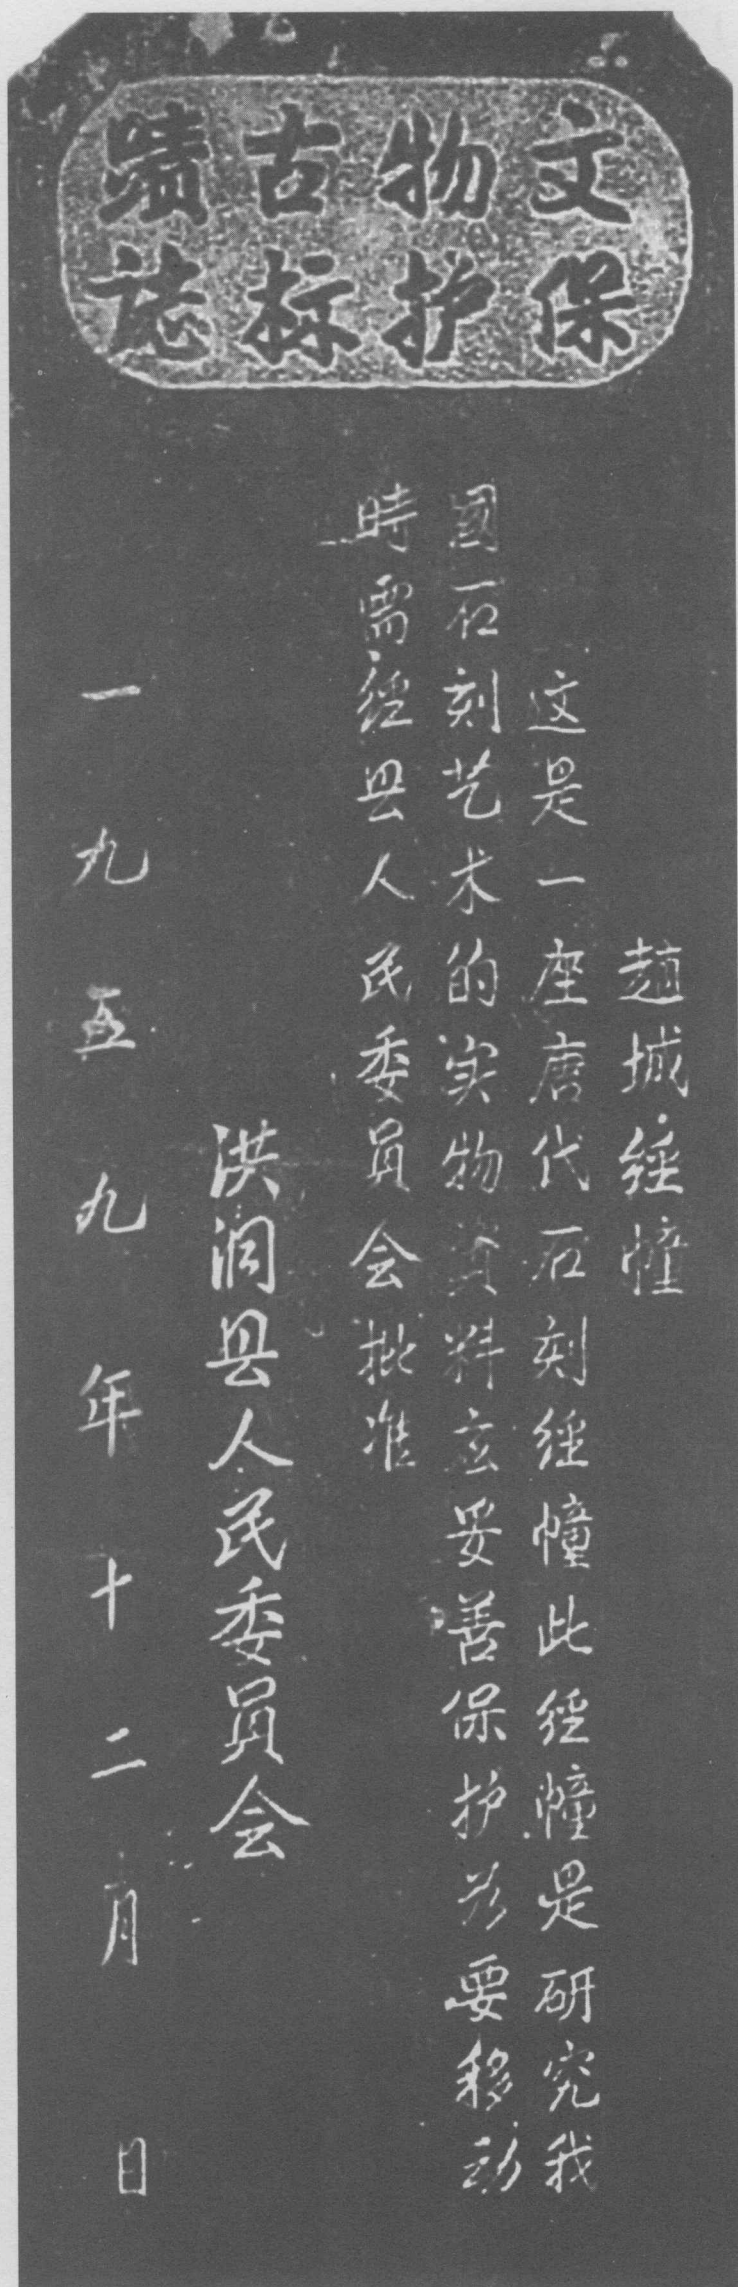 文物古蹟
保护标誌
趙城經幢
这是一座唐代石刻經幢此經幢是研究我
國石刻艺术的实物資料应妥善保护必要移动
時需經县人民委員会批准
洪洞县人民委員会
一九五九年十二月 日